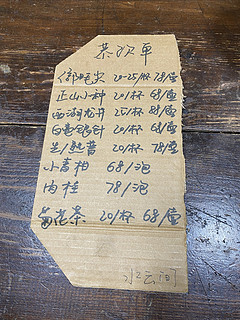 茶水单
信阳毛尖 20-25/杯 78/壶
正山小种 20/杯 68/壶
西湖龙井 25/杯 88/壶
白毫银针 20/杯 68/壶
生/熟普 20/杯 78/壶
小青柑 68/泡
肉桂 78/泡
菊花茶 20/杯 68/壶
水云间